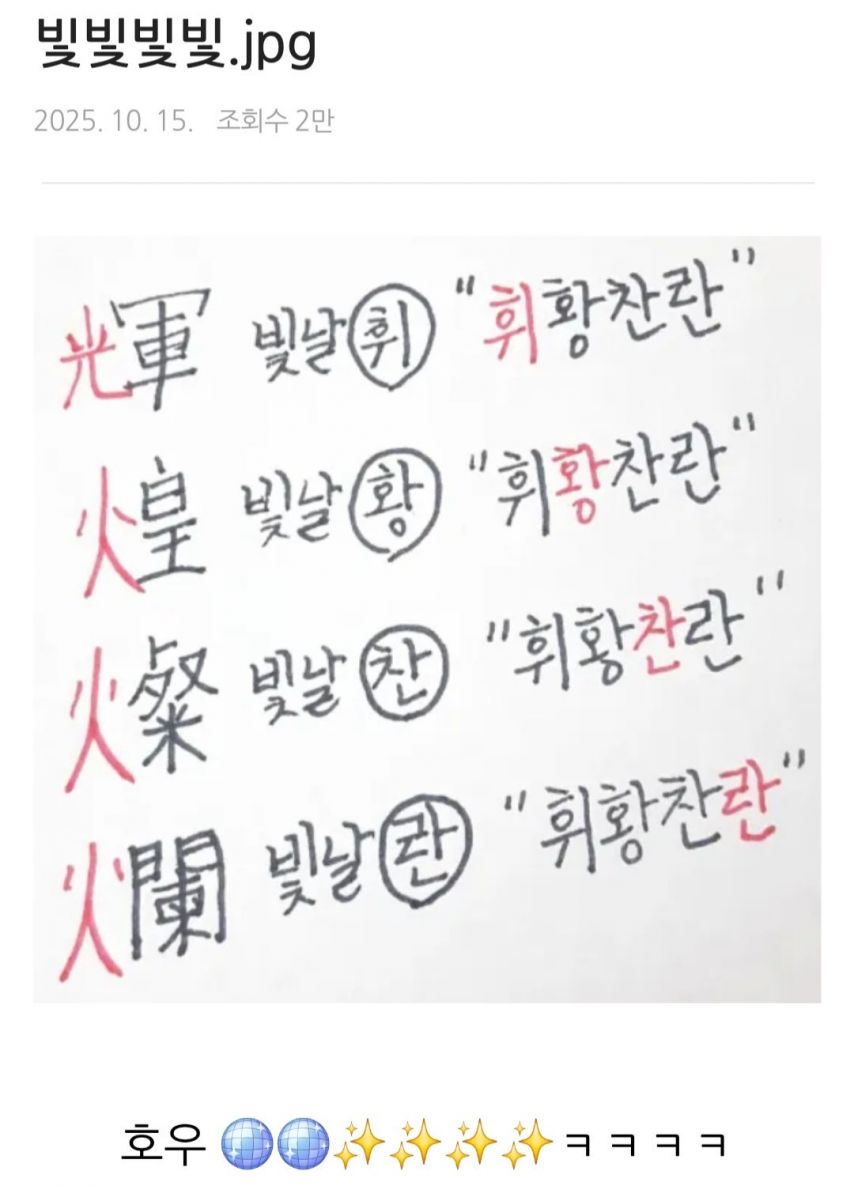 빛빛빛빛.jpg
2025. 10. 15. 조회수 2만
輝 빛날 휘 "휘황찬란"
煌 빛날 황 "휘황찬란"
燦 빛날 찬 "휘황찬란"
爛 빛날 란 "휘황찬란"
호우 🪩🪩✨✨✨✨ㅋㅋㅋㅋ